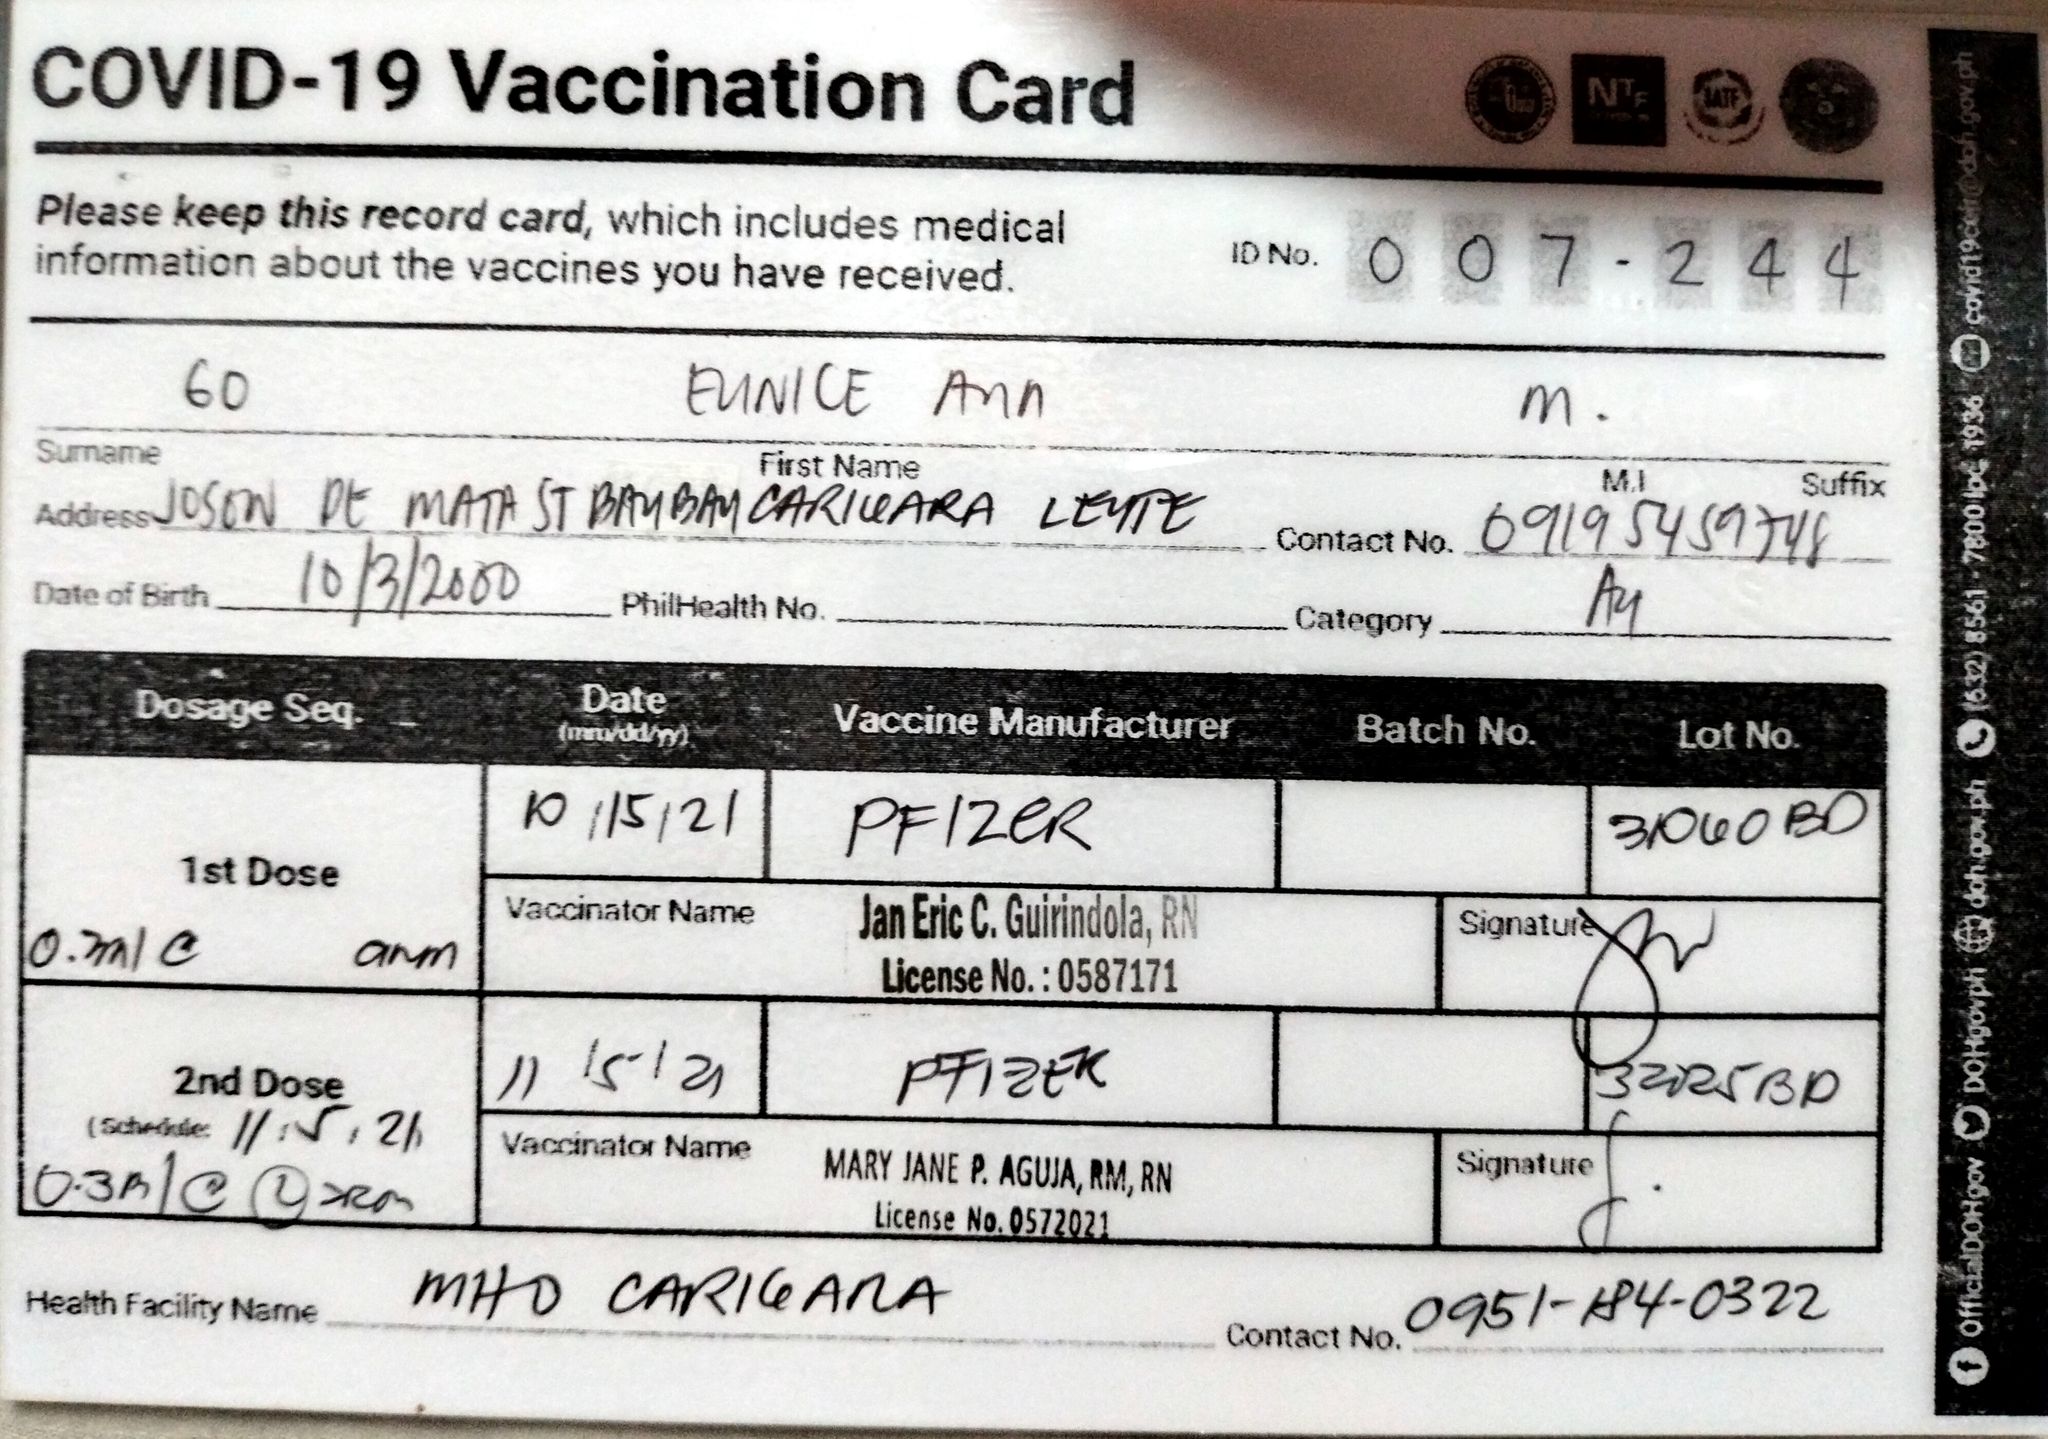 COVID-19 Vaccination Card
NTF
IATF
Please keep this record card, which includes medical
information about the vaccines you have received.
ID No. 007-244
GO EUNICE Ann M.
Surname First Name M.I Suffix
Address JOSON DE MATA ST BAYBAY CARIGARA LEYTE Contact No. 09195459748
Date of Birth 10/3/2000 PhilHealth No. Category A4
Dosage Seq. Date (mm/dd/yy) Vaccine Manufacturer Batch No. Lot No.
1st Dose 10/15/21 PFIZER 31060BD
Vaccinator Name Jan Eric C. Guirindola, RN Signature
License No.: 0587171
0.3ml C
2nd Dose 11/5/21 PFIZER 32025BD
(Schedule: 11.5.21
Vaccinator Name MARY JANE P. AGUJA, RM, RN Signature
License No. 0572021
0.3ml C
Health Facility Name MHO CARIGARA Contact No. 0951-184-0322
OfficialDOHgov DOHgovph doh.gov.ph (632) 8561-7800 loc 1936 covid19ceir@doh.gov.ph